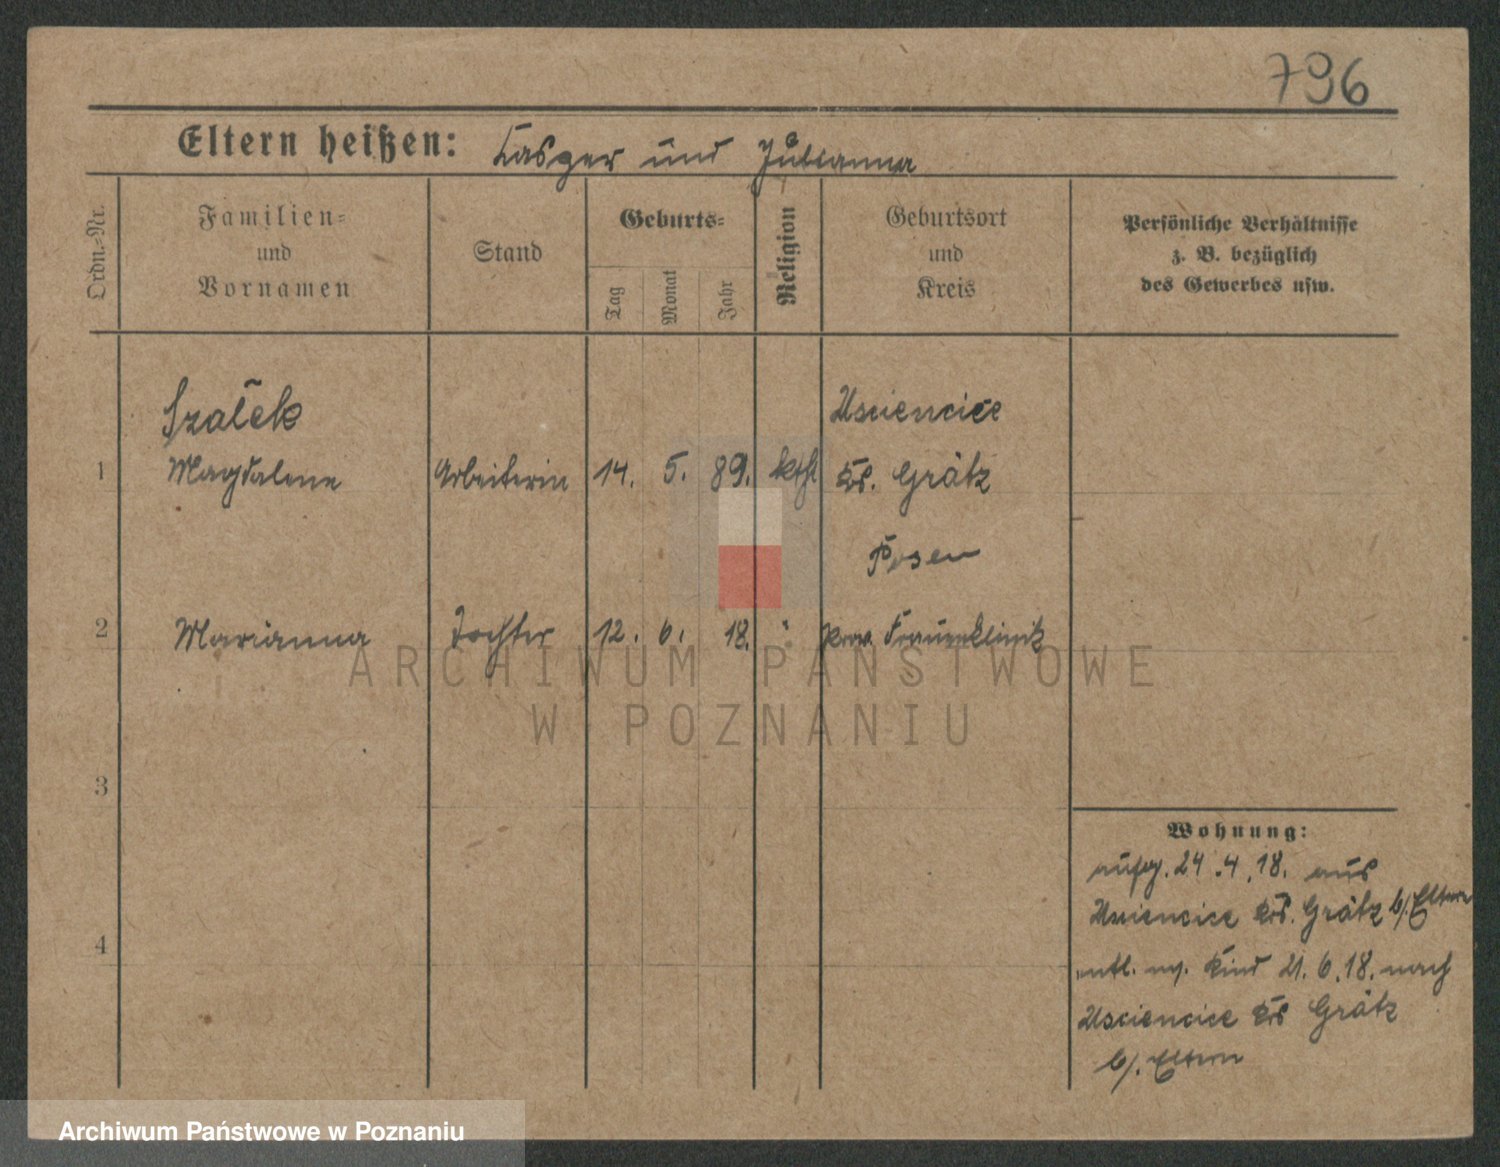 796
Eltern heißen: Kasper und Julianna
Ordn.-Nr.
Familien-
und
Vornamen
Stand
Geburts-
Tag
Monat
Jahr
Religion
Geburtsort
und
Kreis
Persönliche Verhältnisse
z. B. bezüglich
des Gewerbes usw.
Szałek
Usciencice
1 Magdalene Arbeiterin 14. 5. 89. kthl Krs. Grätz
Posen
2 Marianna Tochter 12. 6. 18. " Prov. Frauenklinik
3
4
Wohnung:
aufg. 24.4.18. aus
Usciencice Krs. Grätz b/. Eltern
entl. m. Kind 21.6.18. nach
Usciencice Krs Grätz
b/. Eltern
ARCHIWUM PAŃSTWOWE
W POZNANIU
Archiwum Państwowe w Poznaniu